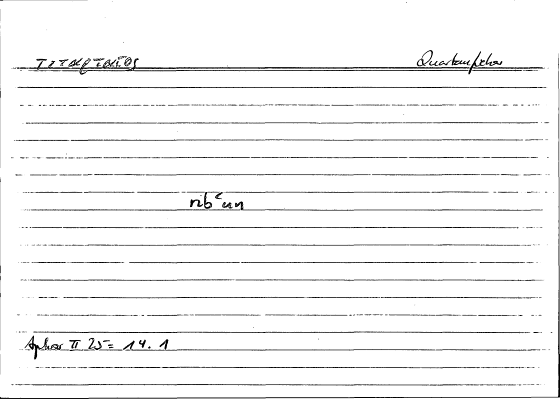 τεταρταῖος Quartanfieber
ribʿun
Aphor II 25 = 14.1